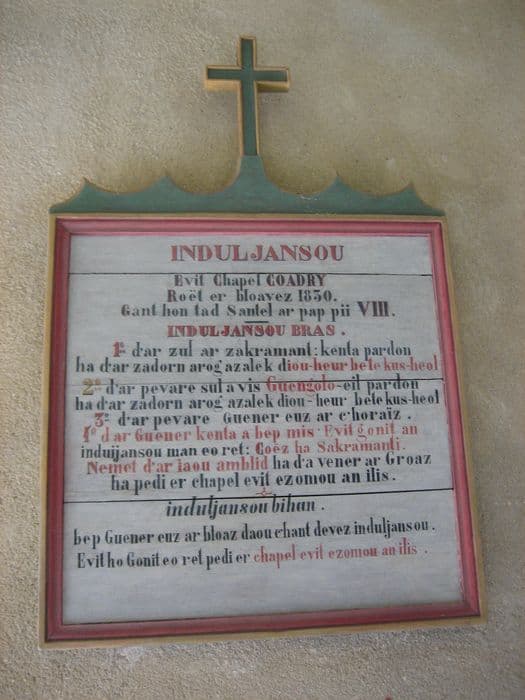 INDULJANSOU
Evit Chapel COADRY
Roët er bloavez 1830.
Gant hon tad Santel ar pap pii VIII.
INDULJANSOU BRAS.
1º d'ar zul ar zakramant: kenta pardon
ha d'ar zadorn arog azalek diou-heur bete kus-heol
2º d'ar pevare sul a vis Guengolo-eil pardon
ha d'ar zadorn arog azalek diou-heur bete kus-heol
3º d'ar pevare Guener euz ar c'horaïz.
4º d'ar Guener kenta a bep mis. Evit gonit an
induijansou man eo ret: Coëz ha Sakramanti.
Nemet d'ar iaou amblid ha d'a vener ar Groaz
ha pedi er chapel evit ezomou an ilis.
induljansou bihan.
bep Guener euz ar bloaz daou c'hant devez induljansou.
Evit ho Gonit eo ret pedi er chapel evit ezomou an ilis.